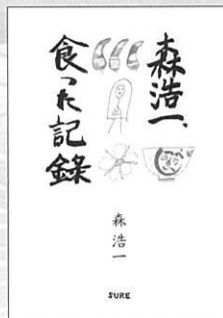 森浩一、
食った記録
森浩一
SURE